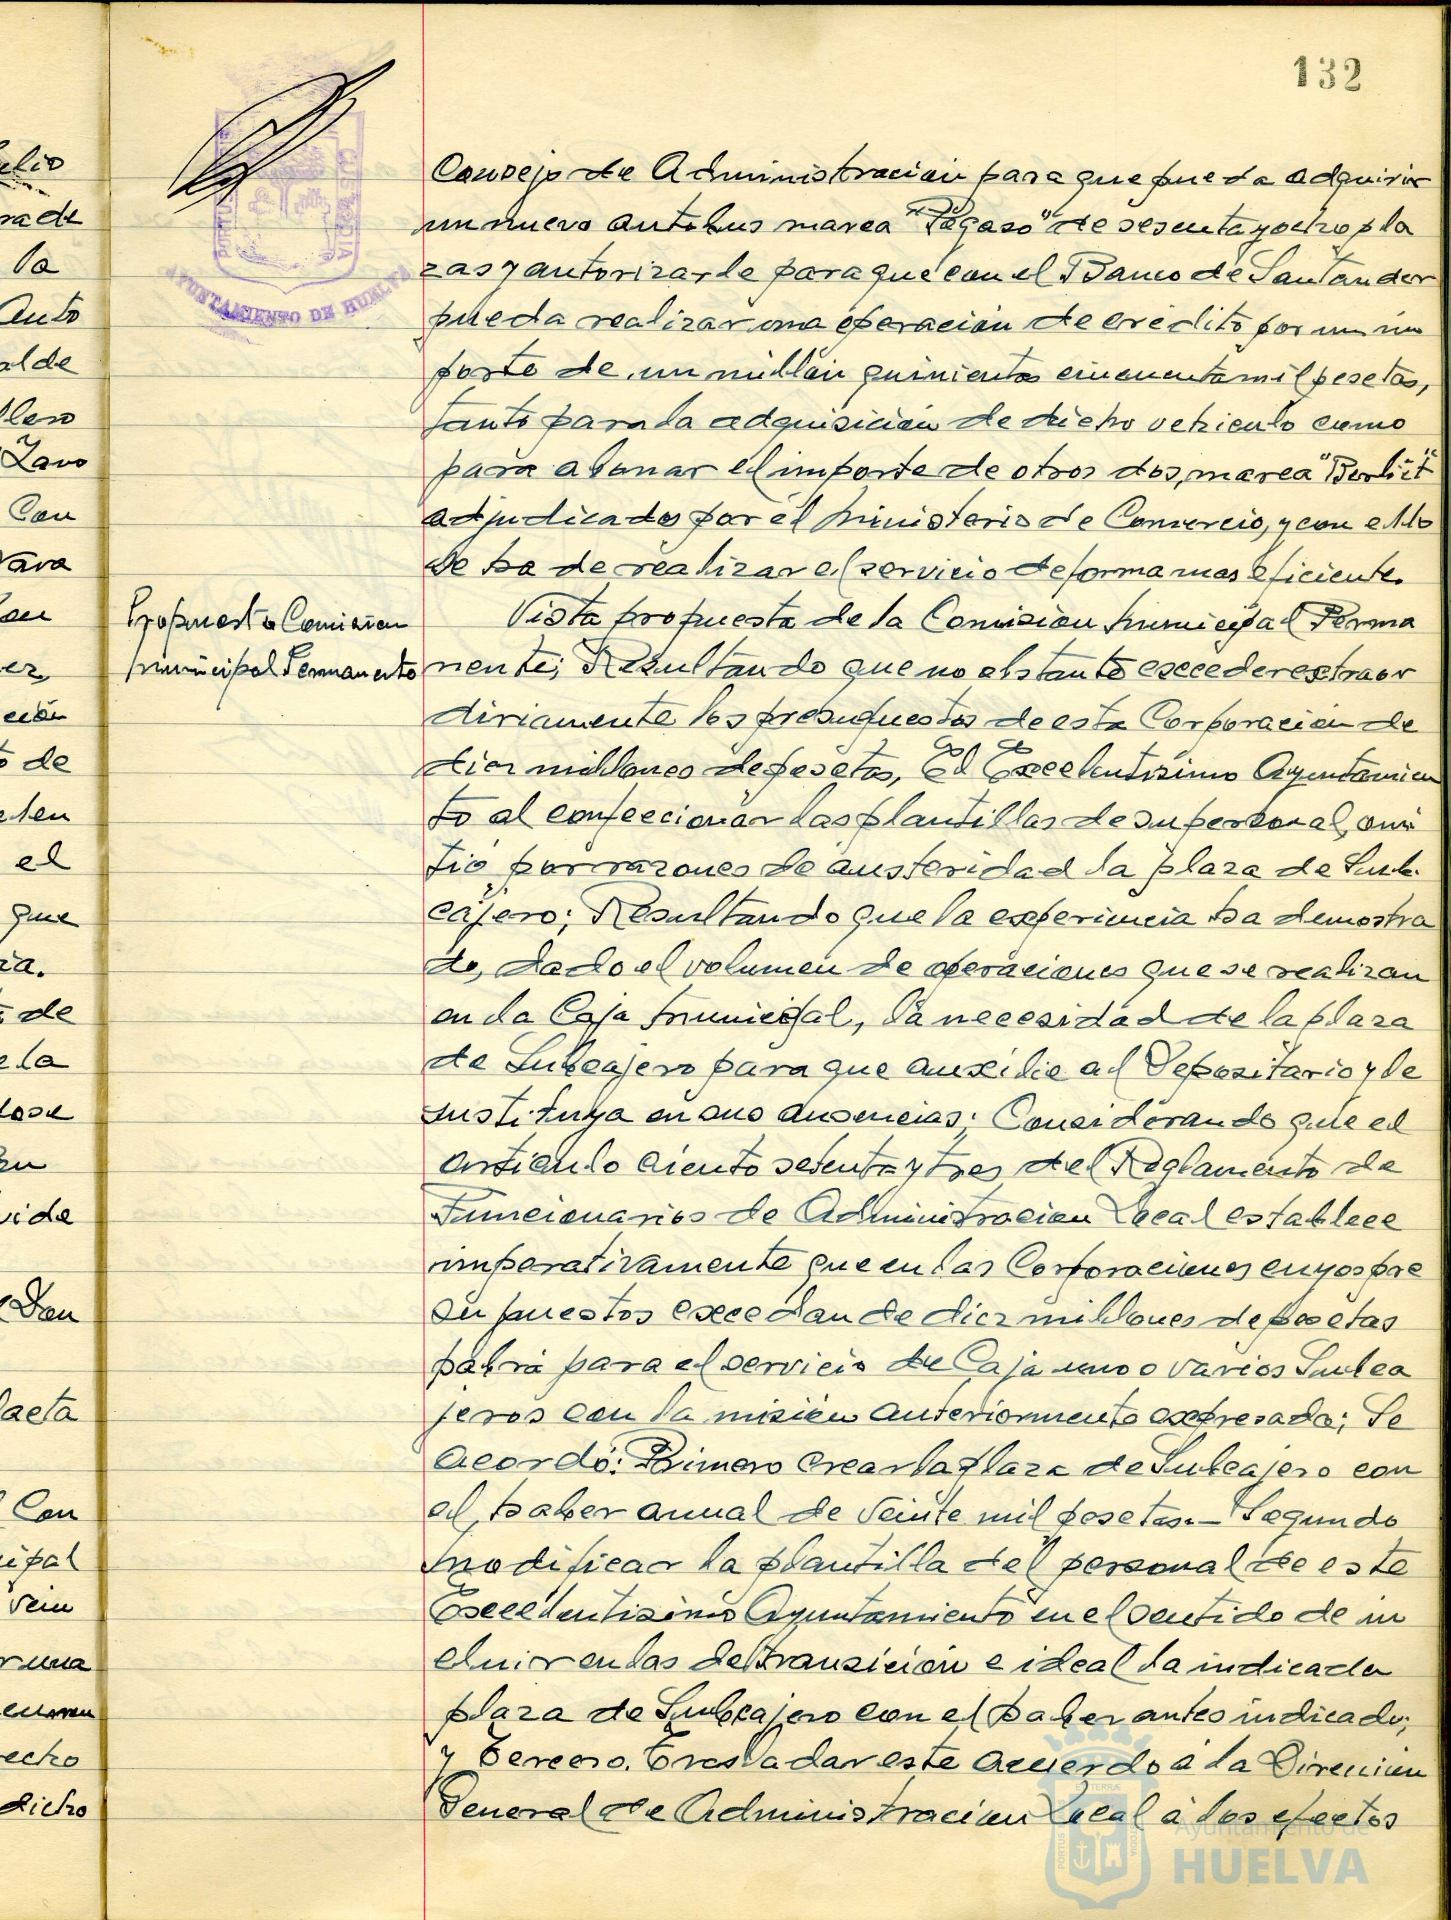 132
Consejo de Administración para que pueda adquirir
un nuevo autobus marca "Pegaso" de sesenta y ocho pla
zas y autorizarle para que con el Banco de Santander
pueda realizar una operación de crédito por un im
porte de un millón quinientas cincuenta mil pesetas,
tanto para la adquisición de dicho vehiculo como
para abonar el importe de otros dos, marca "Berliet"
adjudicados por el Ministerio de Comercio, y con ello
se ha de realizar el servicio de forma mas eficiente.
Propuesta Comision
Municipal Permanente
Vista propuesta de la Comision Municipal Perma
nente; Resultando que no obstante exceder extraor
diriamente los presupuestos de esta Corporación de
diez millones de pesetas, El Excelentisimo Ayuntamien
to al confeccionar las plantillas de su personal, omi
tió por razones de austeridad la plaza de Sub-
cajero; Resultando que la experiencia ha demostra
do, dado el volumen de operaciones que se realizan
en la Caja Municipal, la necesidad de la plaza
de Subcajero para que auxilie al Depositario y le
sustituya en sus ausencias; Considerando que el
articulo ciento setenta y tres del Reglamento de
Funcionarios de Administracion Local establece
imperativamente que en las Corporaciones cuyos pre
supuestos excedan de diez millones de pesetas
habrá para el servicio de Caja uno o varios Subca
jeros con la misión anteriormente expresada; Se
acordó: Primero crear la plaza de Subcajero con
el haber anual de veinte mil pesetas.- Segundo
modificar la plantilla del personal de este
Excelentisimo Ayuntamiento en el sentido de in
cluir en las de transición e ideal la indicada
plaza de Subcajero con el haber antes indicado;
y Tercero. Trasladar este acuerdo á la Dirección
General de Administracion Local á los efectos
PORTUS
CUSTODIA
AYUNTAMIENTO DE HUELVA
ulio
rade
la
Auto
alde
llero
Zavo
Con
ción
o de
el
que
de
ela
vide
Don
acta
Con
cipal
Vein
runa
echo
dicho
Ayuntamiento de
HUELVA